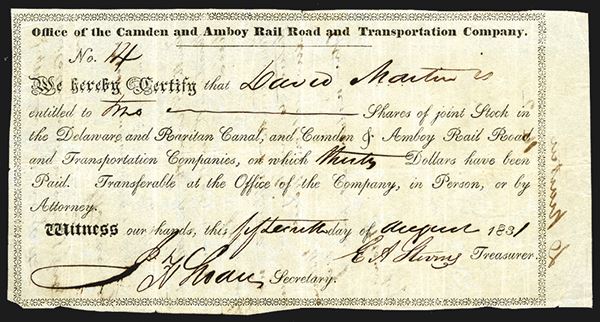 Office of the Camden and Amboy Rail Road and Transportation Company.
No. 14
We hereby Certify that David Martin is
entitled to Two Shares of joint Stock in
the Delaware and Raritan Canal, and Camden & Amboy Rail Road
and Transportation Companies, on which thirty Dollars have been
Paid. Transferable at the Office of the Company, in Person, or by
Attorney.
Witness our hands, this fifteenth day of august 1831
E A Stevens Treasurer.
Secretary.